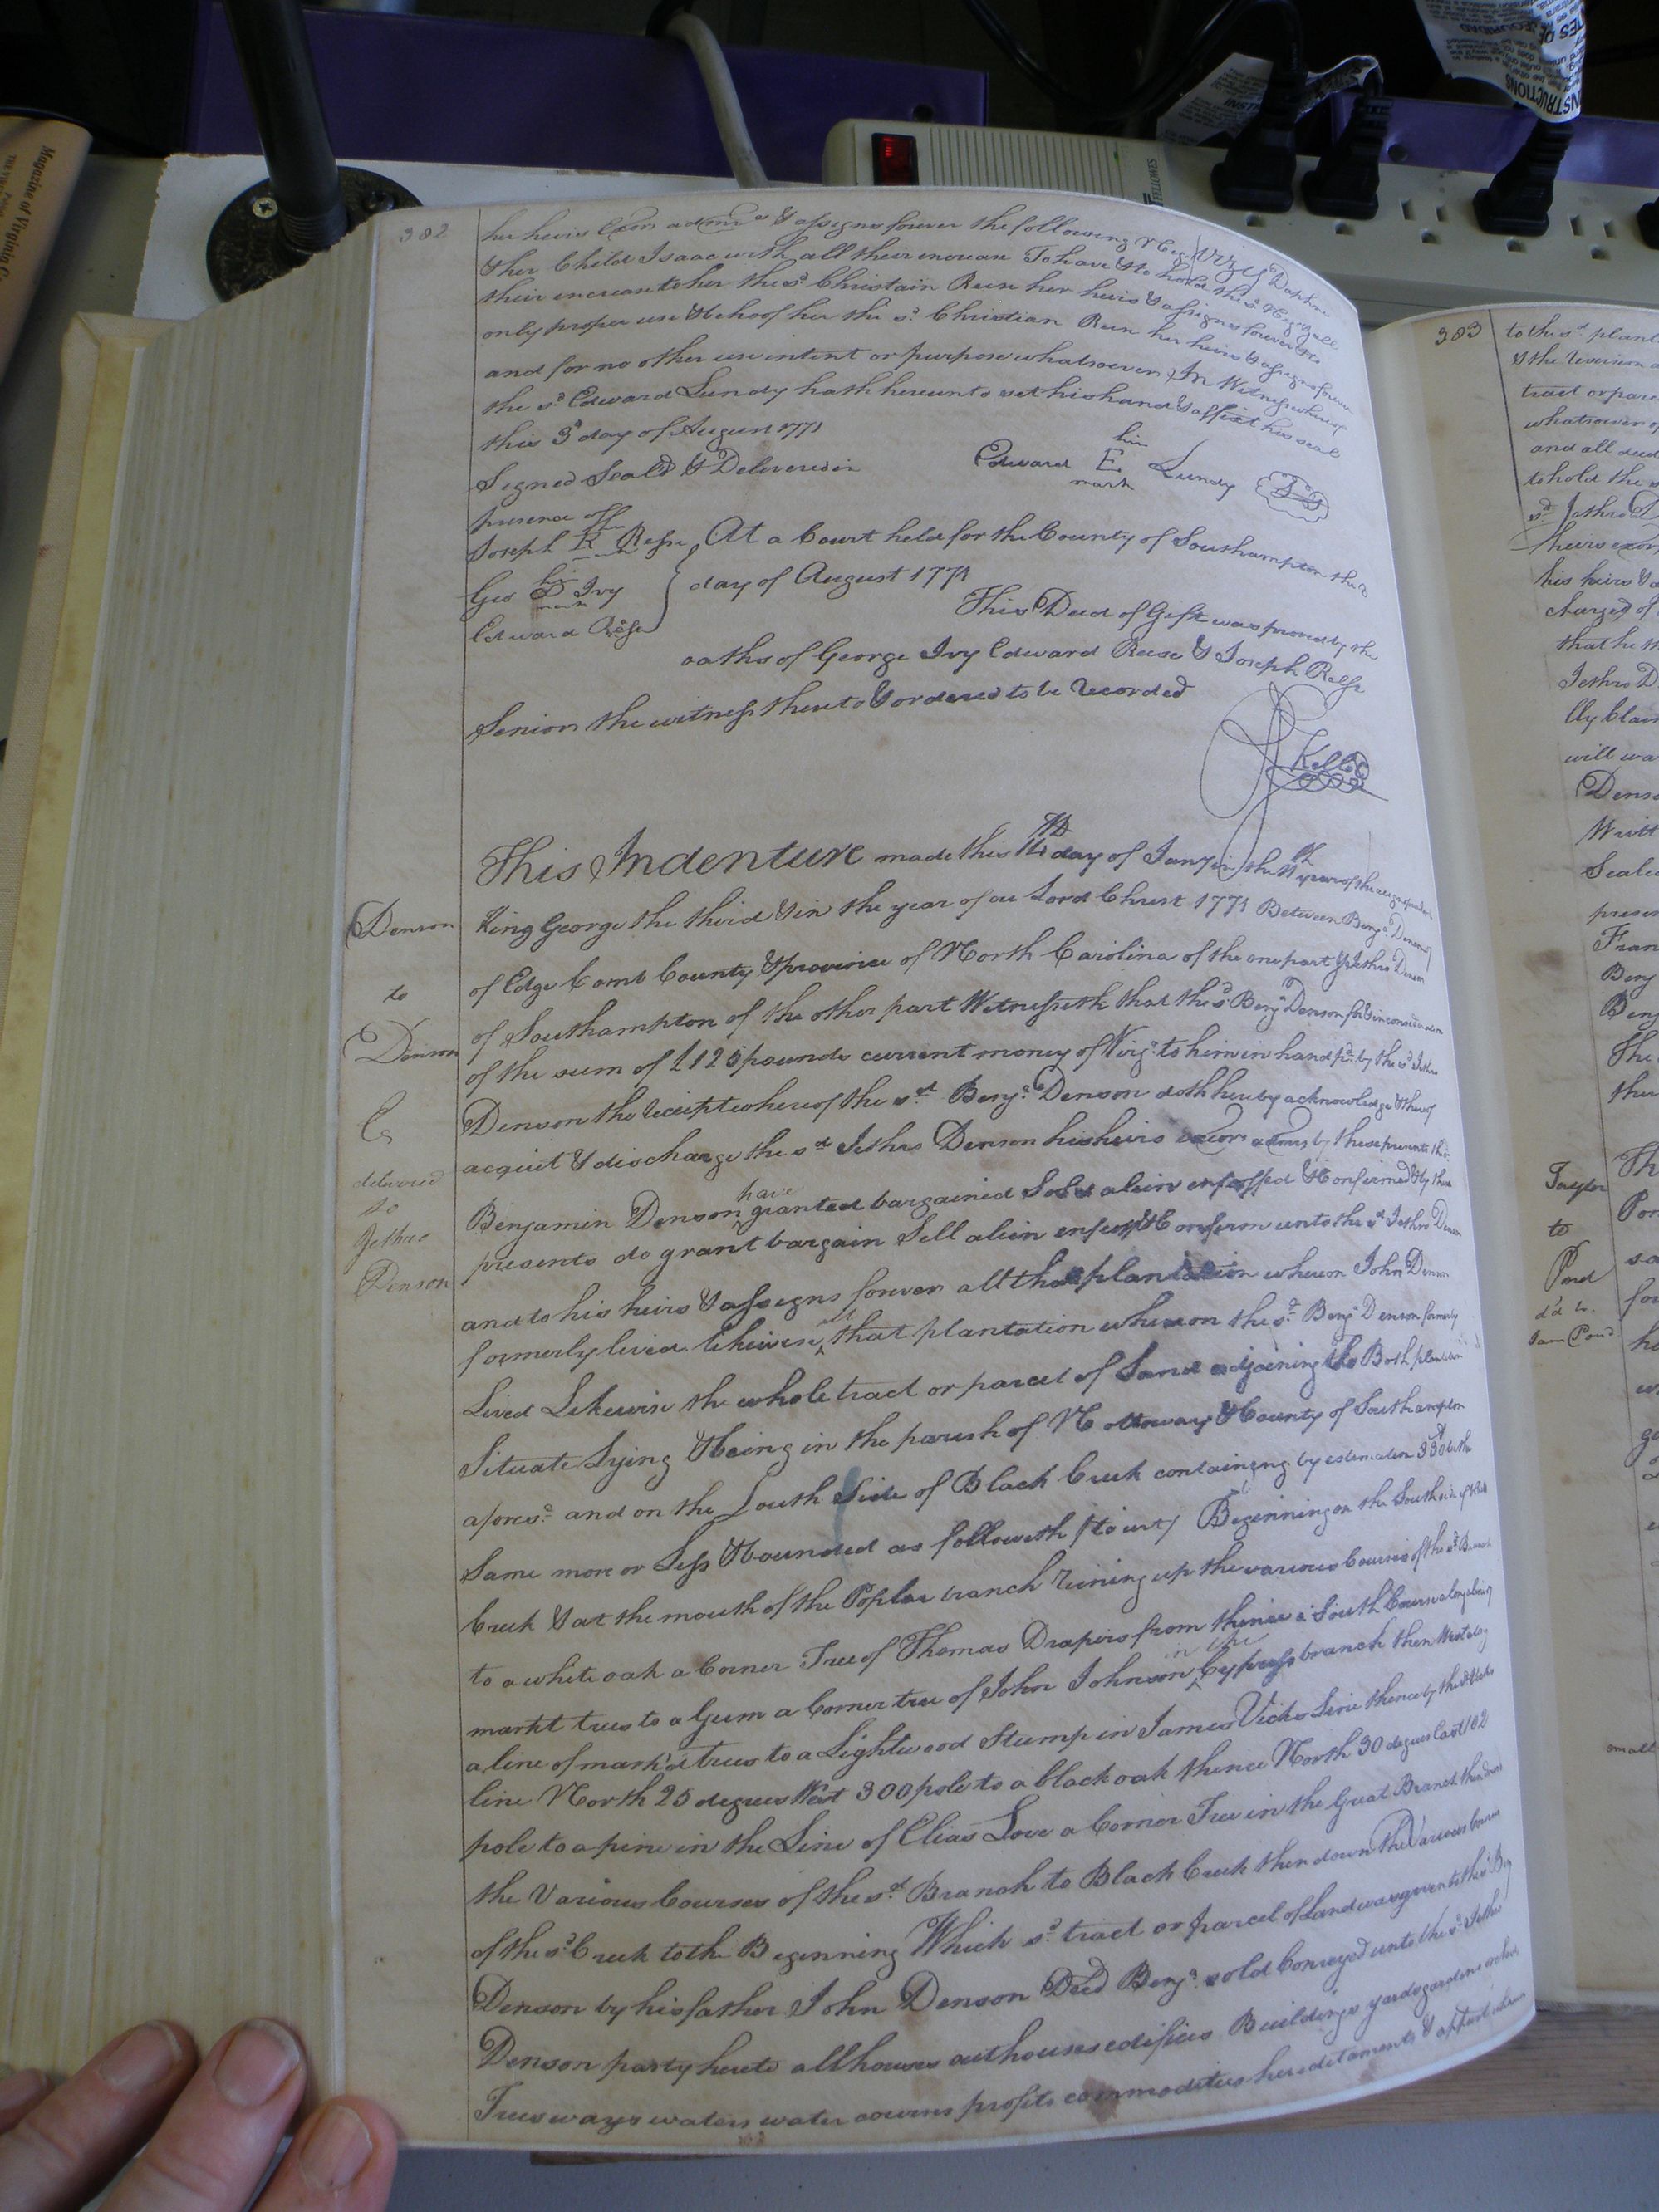 382
her heirs Exrs admrs & assigns forever the following Negroes (Vizt) Daphne
& her Child Isaac with all their increase To have & to hold the sd Negroes & all
their increase to her the sd Christain Reese her heirs & assigns forever to the
only proper use & behoof of her the sd Christian Reese her heirs & assigns forever
and for no other use intent or purpose whatsoever, In Witness whereof
the sd Edward Lundy hath hereunto set his hand & affixt his seal
this 3d day of August 1771
Signed Seald & Delivered in
his
Edward E Lundy
mark
presence off
Joseph R Reese
At a Court held for the County of Southampton the 8
his
Geo D Ivy
mark
day of August 1771
Edward Reese
This Deed of Gift was proved by the
oaths of George Ivy Edward Reese & Joseph Reese
Senior the witness thereto & ordered to be Recorded
Kello
This Indenture made this 11th day of Jany in the 11th year of the reign
King George the third & in the year of our Lord Christ 1771 Between Benja Denson
of Edge Comb County & province of North Carolina of the one part & Jethro Denson
of Southampton of the other part Witnesseth that the sd Benja Denson for & in consideration
of the sum of £125 pounds current money of Virga to him in hand pd by the sd Jethro
Denson the receipt whereof the sd Benja Denson doth hereby acknowledge & thereof
acquit & discharge the sd Jethro Denson his heirs execrs admrs by these presents the sd
Benjamin Denson have granted bargained Sold alein enfeoffed & Confirmed & by these
presents do grant bargain Sell alein enfeoff & Confirm unto the sd Jethro Denson
and to his heirs & assigns forever all that plantation whereon John Denson
formerly lived likewise all that plantation whereon the sd Benja Denson formerly
Lived Likewise the whole tract or parcel of Land adjoining the Both plantation
Situate Lying & being in the parish of Nottoway & County of Southampton
aforesd and on the South Side of Black Creek containing by estimation 330 be the
Same more or Less & bounded as followeth (to wit) Beginning on the South side of the sd
Creek & at the mouth of the Poplar branch runing up the various Courses of the sd Branch
to a white oak a Corner Tree of Thomas Drapers from thence a South Course along a line of
markt trees to a Gum a Corner tree of John Johnson in the Cypress branch then West along
a line of mark'd trees to a Lightwood Stump in James Vicks Line thence by the sd Vicks
line North 25 degrees West 300 pole to a black oak thence North 30 degrees East 102
pole to a pine in the Line of Elias Love a Corner Tree in the Great Branch then down
the Various Courses of the sd Branch to Black Creek then down the Various Courses
of the sd Creek to the Beginning Which sd tract or parcel of Land was given to the sd Benj
Denson by his father John Denson Decd Benja sold Conveyed unto the sd Jethro
Denson party hereto all houses outhouses edifices Buildings yards gardens orchards
Trees ways waters water courses profits commodities hereditaments & appurtenances
Denson
to
Denson
Ex
delivered
to
Jethro
Denson
383
to the sd plant
& the reversion
tract or parce
whatsoever of
and all deed
to hold the s
sd Jethro D
his heirs &
charged of
that he th
Jethro D
lly Clai
will wa
Denso
Writt
Seale
presen
Fran
Benj
Benj
The
ther
Taylor
to
Pond
dd to
Sam Pond
small
Magazine of Virginia
FELLOWES
INSTRUCTIONS